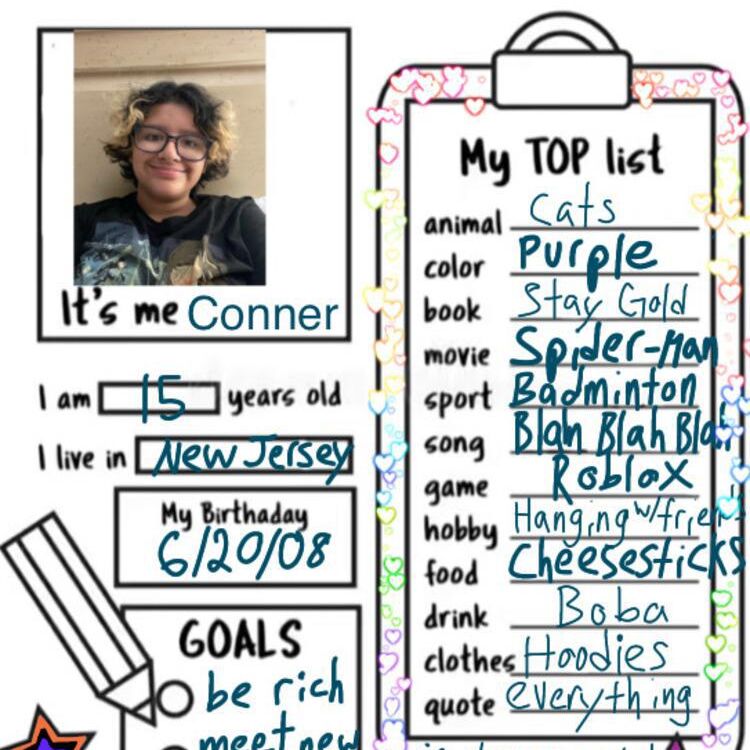 It's me Conner
I am 15 years old
I live in New Jersey
My Birthaday
6/20/08
GOALS
be rich
meet new
My TOP list
animal Cats
color Purple
book Stay Gold
movie Spider-Man
sport Badminton
song Blah Blah Blah
game Roblox
hobby Hanging w/friends
food Cheesesticks
drink Boba
clothes Hoodies
quote everything